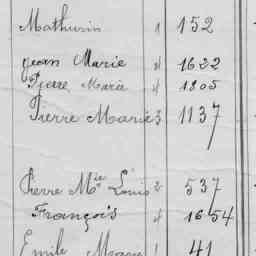 Mathurin 1 152
Jean Marie 4 1622
Pierre Marie 4 1805
Pierre Marie 3 1137
Pierre Mie Louis 2 537
François 4 1654
Emile 1 41